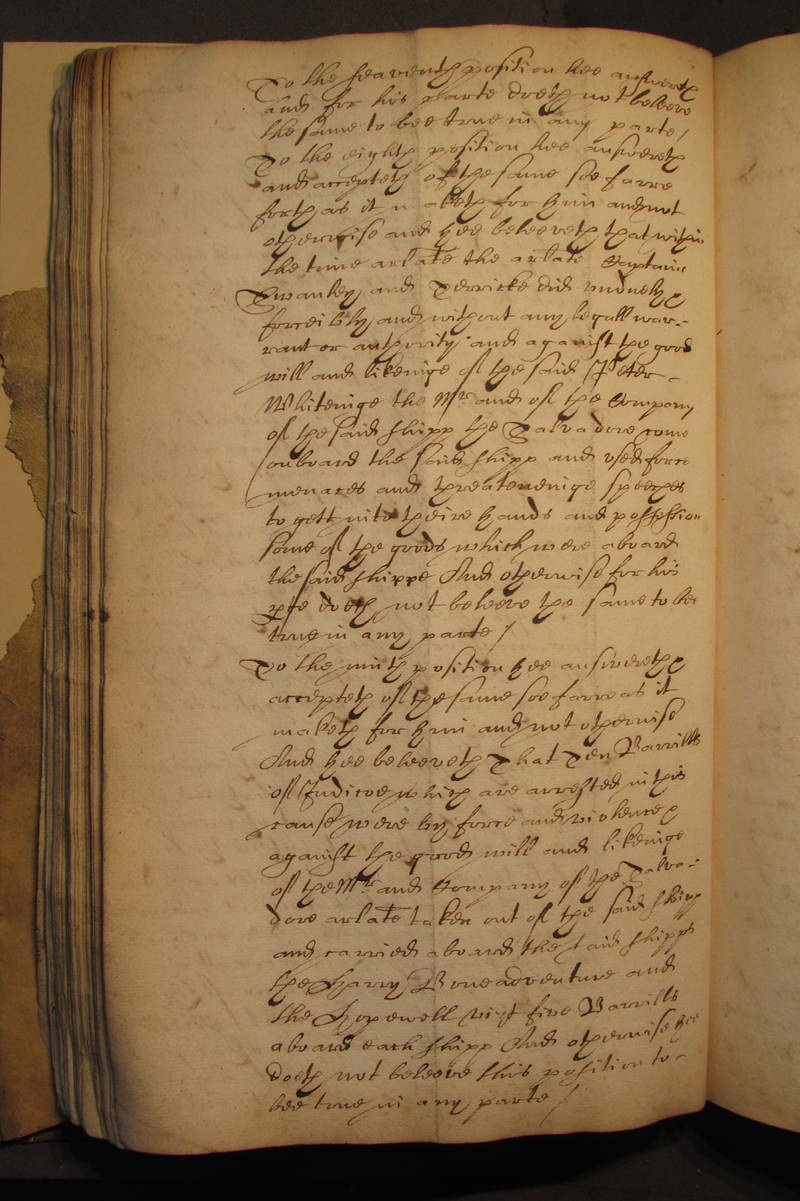 To the seaventh position hee answereth
and for his parte doeth not beleeve
the same to bee true in any parte /
To the eighth position hee answereth
and accepteth of the same soe farre
forth as it maketh for him and not
otherwise and hee beleeveth that within
the time arlate the arlate Captaine
Swanley and Derricke did unduely
forceibly and without any legall war-
rant or authority and against the good
will and likeinge of the said Peter
Whiteinge the Mr and of the Company
of the said shipp the Salvadore come
onboard the said shipp and used force
menaces and threateneinge speeches
to gett into theire hands and possession
some of the goods which were aboard
the said shippe And otherwise for his
pte doeth not beleeve the same to bee
true in any parte /
To the ninth position hee answereth
accepteth of the same soe farre as it
maketh for him and not otherwise
And hee beleeveth That Ten Barrills
of Indicoe which are arrested in this
cause were by force and violence
against the good will and likeinge
of the Mr and Company of the Salva-
dore arlate taken out of the said shipp
and carried aboard the said shipps
the Harry Boneadventure and
the Hopewell vizt five Barrills
aboard each shipp And otherwise hee
doeth not beleeve this position to
bee true in any parte /